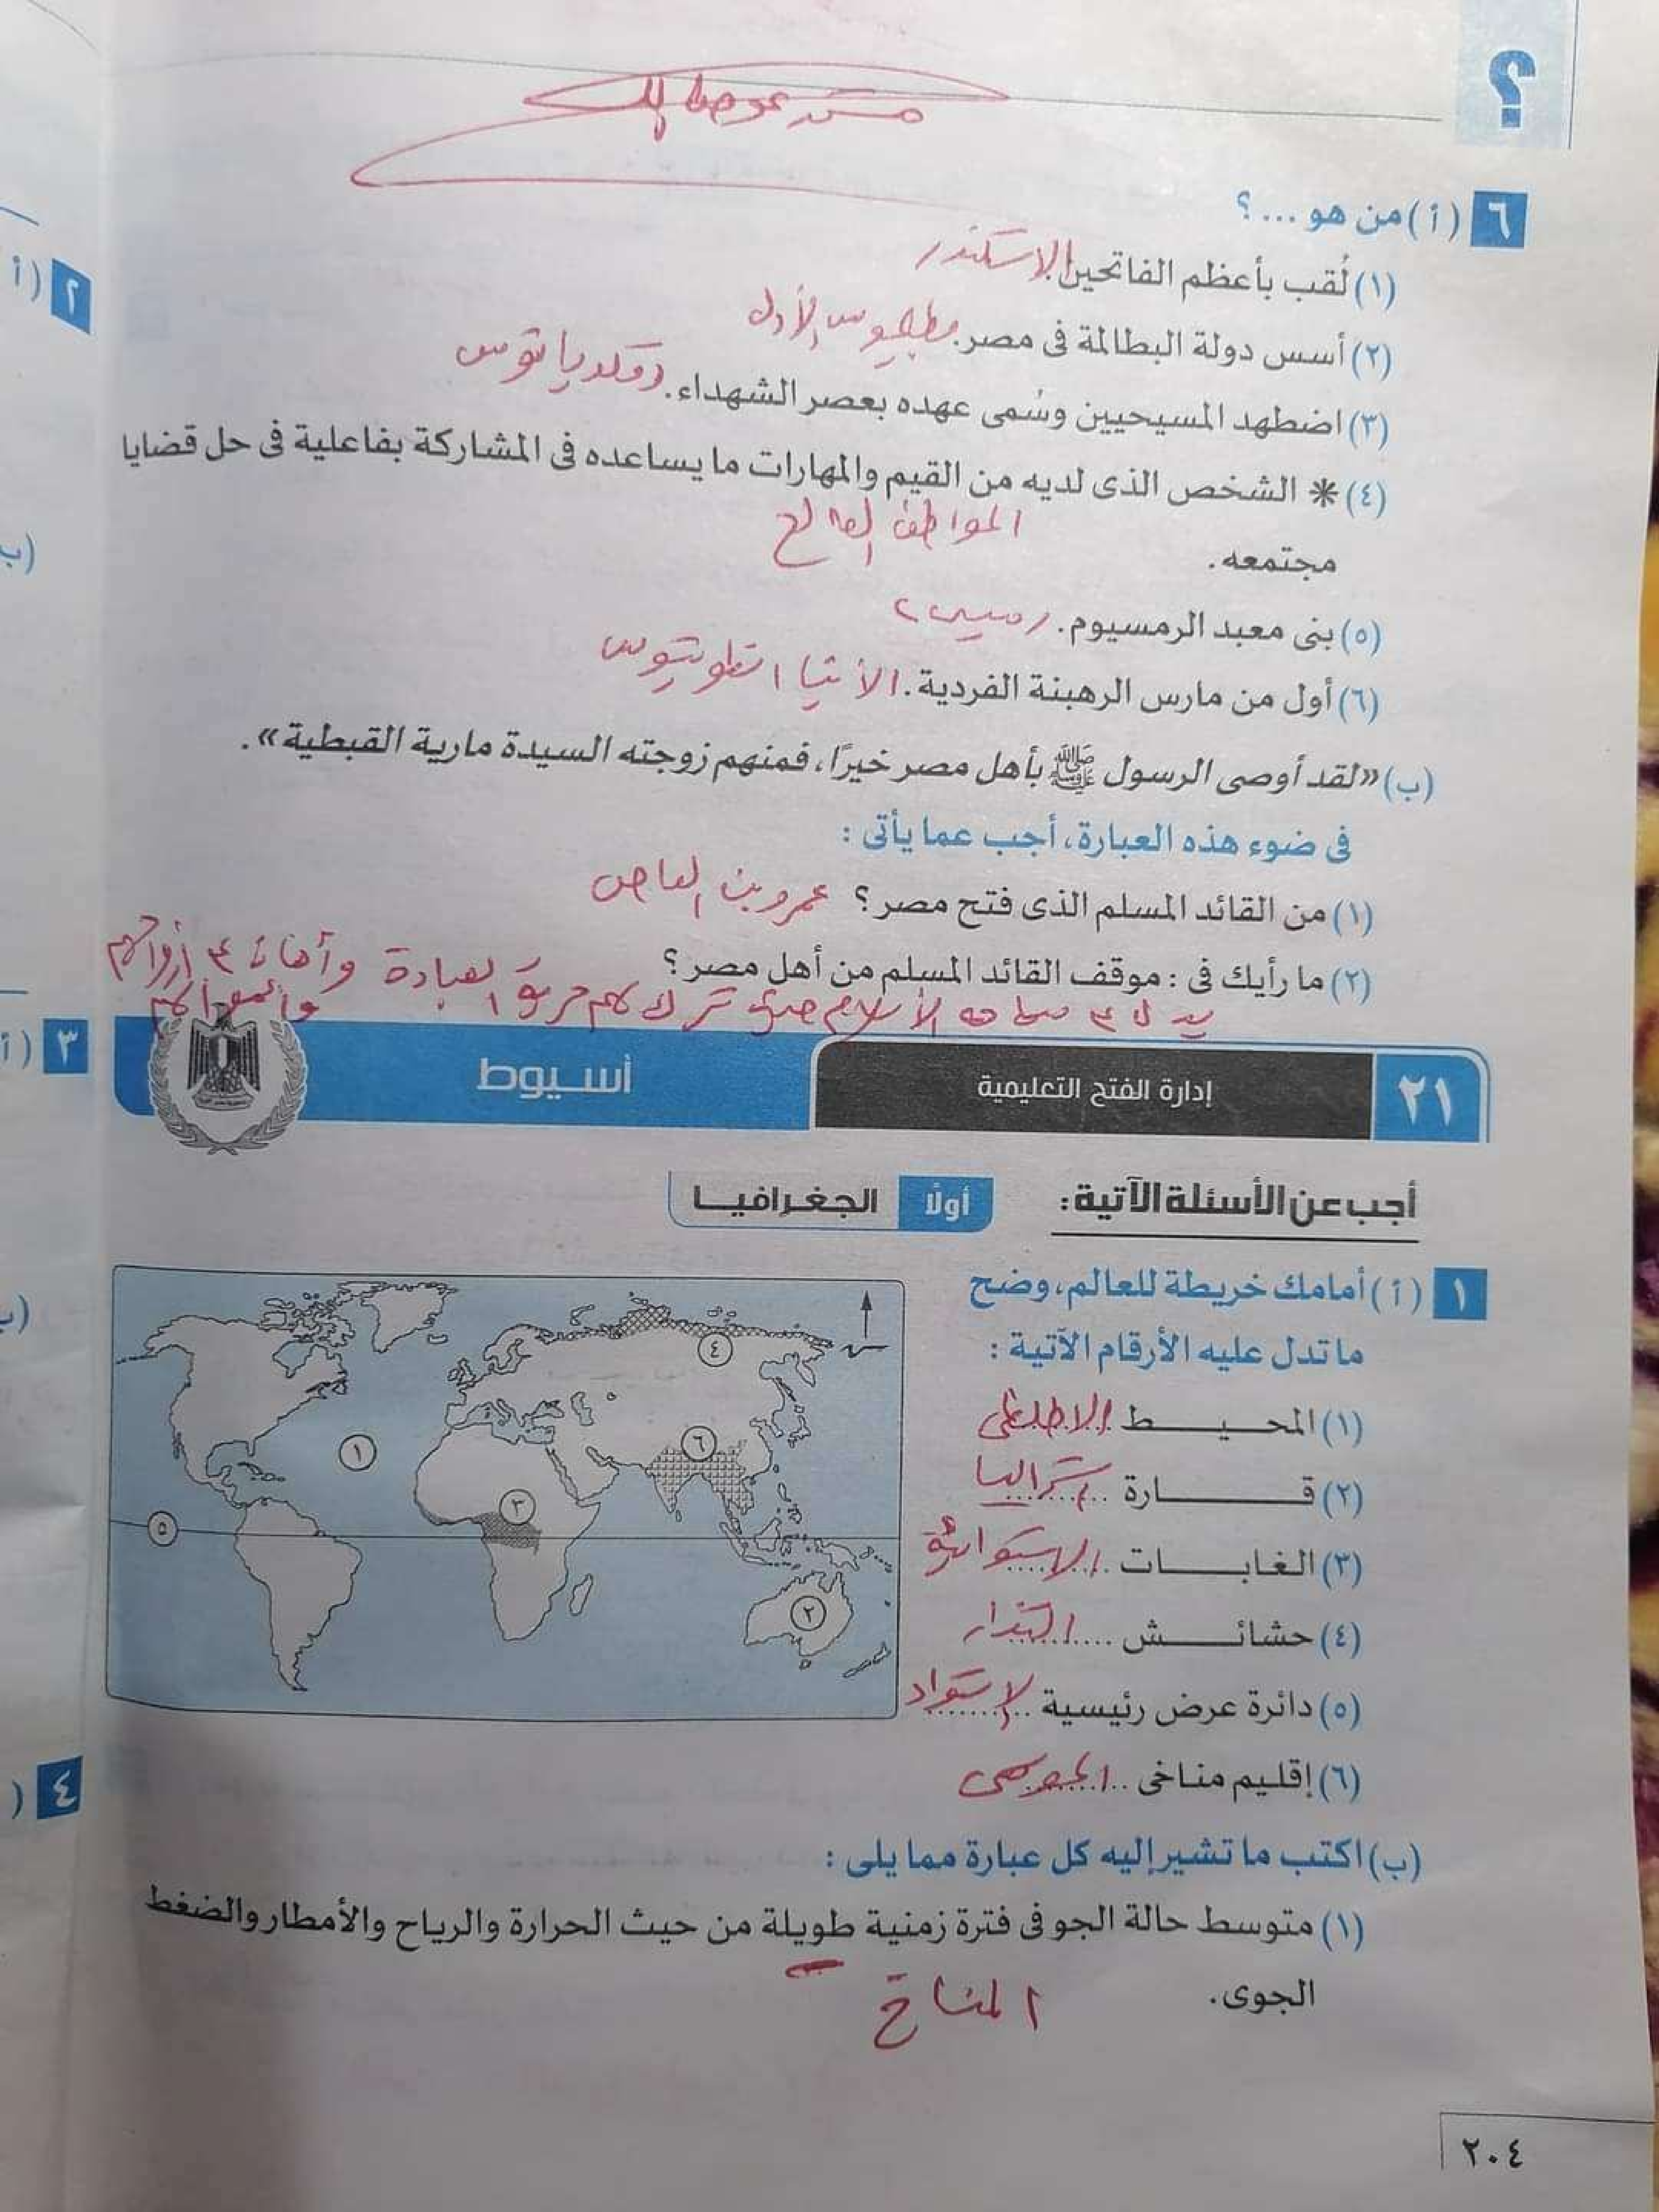 ؟
مستر عوض الله
٦ (أ) من هو ... ؟
(١) لُقب بأعظم الفاتحين. الاسكندر
(٢) أسس دولة البطالمة فى مصر. بطليموس الأول
(٣) اضطهد المسيحيين وسُمى عهده بعصر الشهداء. دقلديانوس
(٤) * الشخص الذى لديه من القيم والمهارات ما يساعده فى المشاركة بفاعلية فى حل قضايا
مجتمعه. المواطن الصالح
(٥) بنى معبد الرمسيوم. رمسيس ٢
(٦) أول من مارس الرهبنة الفردية. الأنبا انطونيوس
(ب) «لقد أوصى الرسول ﷺ بأهل مصر خيرًا، فمنهم زوجته السيدة مارية القبطية».
فى ضوء هذه العبارة، أجب عما يأتى :
(١) من القائد المسلم الذى فتح مصر؟ عمرو بن العاص
(٢) ما رأيك فى : موقف القائد المسلم من أهل مصر؟
يدل على سماحة الأسلام حيث ترك لهم حرية العبادة
وأموالهم
٢١ إدارة الفتح التعليمية أسيوط
أجب عن الأسئلة الآتية: أولًا الجغرافيا
١ (أ) أمامك خريطة للعالم، وضح
ما تدل عليه الأرقام الآتية :
(١) المحيط الاطلنطى
(٢) قارة استراليا
(٣) الغابات الاستوائية
(٤) حشائش التندرا
(٥) دائرة عرض رئيسية الاستواء
(٦) إقليم مناخى الموسمى
٤
٦
١
٣
٥
٢
(ب) اكتب ما تشير إليه كل عبارة مما يلى :
(١) متوسط حالة الجو فى فترة زمنية طويلة من حيث الحرارة والرياح والأمطار والضغط
الجوى. المناخ
٢٠٤
٢ (أ
(ب
٣ (أ
(ب
٤ (